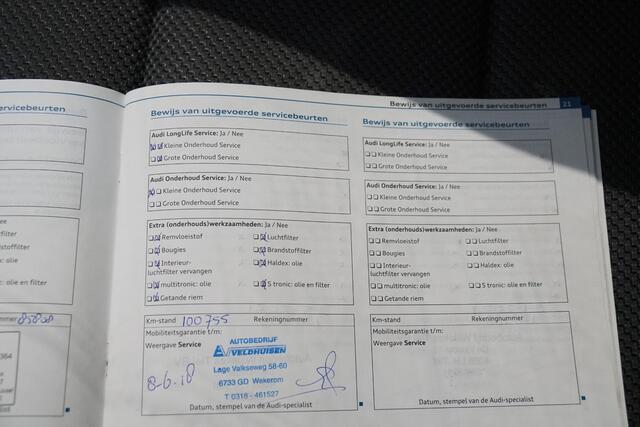 Bewijs van uitgevoerde servicebeurten 21
servicebeurten
mmer 85808
364
Bewijs van uitgevoerde servicebeurten
Audi LongLife Service: Ja / Nee
Kleine Onderhoud Service
Grote Onderhoud Service
Audi Onderhoud Service: Ja / Nee
Kleine Onderhoud Service
Grote Onderhoud Service
Extra (onderhouds)werkzaamheden: Ja / Nee
Remvloeistof Luchtfilter
Bougies Brandstoffilter
Interieur- Haldex: olie
luchtfilter vervangen
multitronic: olie S tronic: olie en filter
Getande riem
Km-stand 100755 Rekeningnummer
Mobiliteitsgarantie t/m:
Weergave Service
AUTOBEDRIJF
VELDHUISEN
Lage Valkseweg 58-60
6733 GD Wekerom
T 0318 - 461527
8-6-18
Datum, stempel van de Audi-specialist
Bewijs van uitgevoerde servicebeurten
Audi LongLife Service: Ja / Nee
Kleine Onderhoud Service
Grote Onderhoud Service
Audi Onderhoud Service: Ja / Nee
Kleine Onderhoud Service
Grote Onderhoud Service
Extra (onderhouds)werkzaamheden: Ja / Nee
Remvloeistof Luchtfilter
Bougies Brandstoffilter
Interieur- Haldex: olie
luchtfilter vervangen
multitronic: olie S tronic: olie en filter
Getande riem
Km-stand Rekeningnummer
Mobiliteitsgarantie t/m:
Weergave Service
Datum, stempel van de Audi-specialist